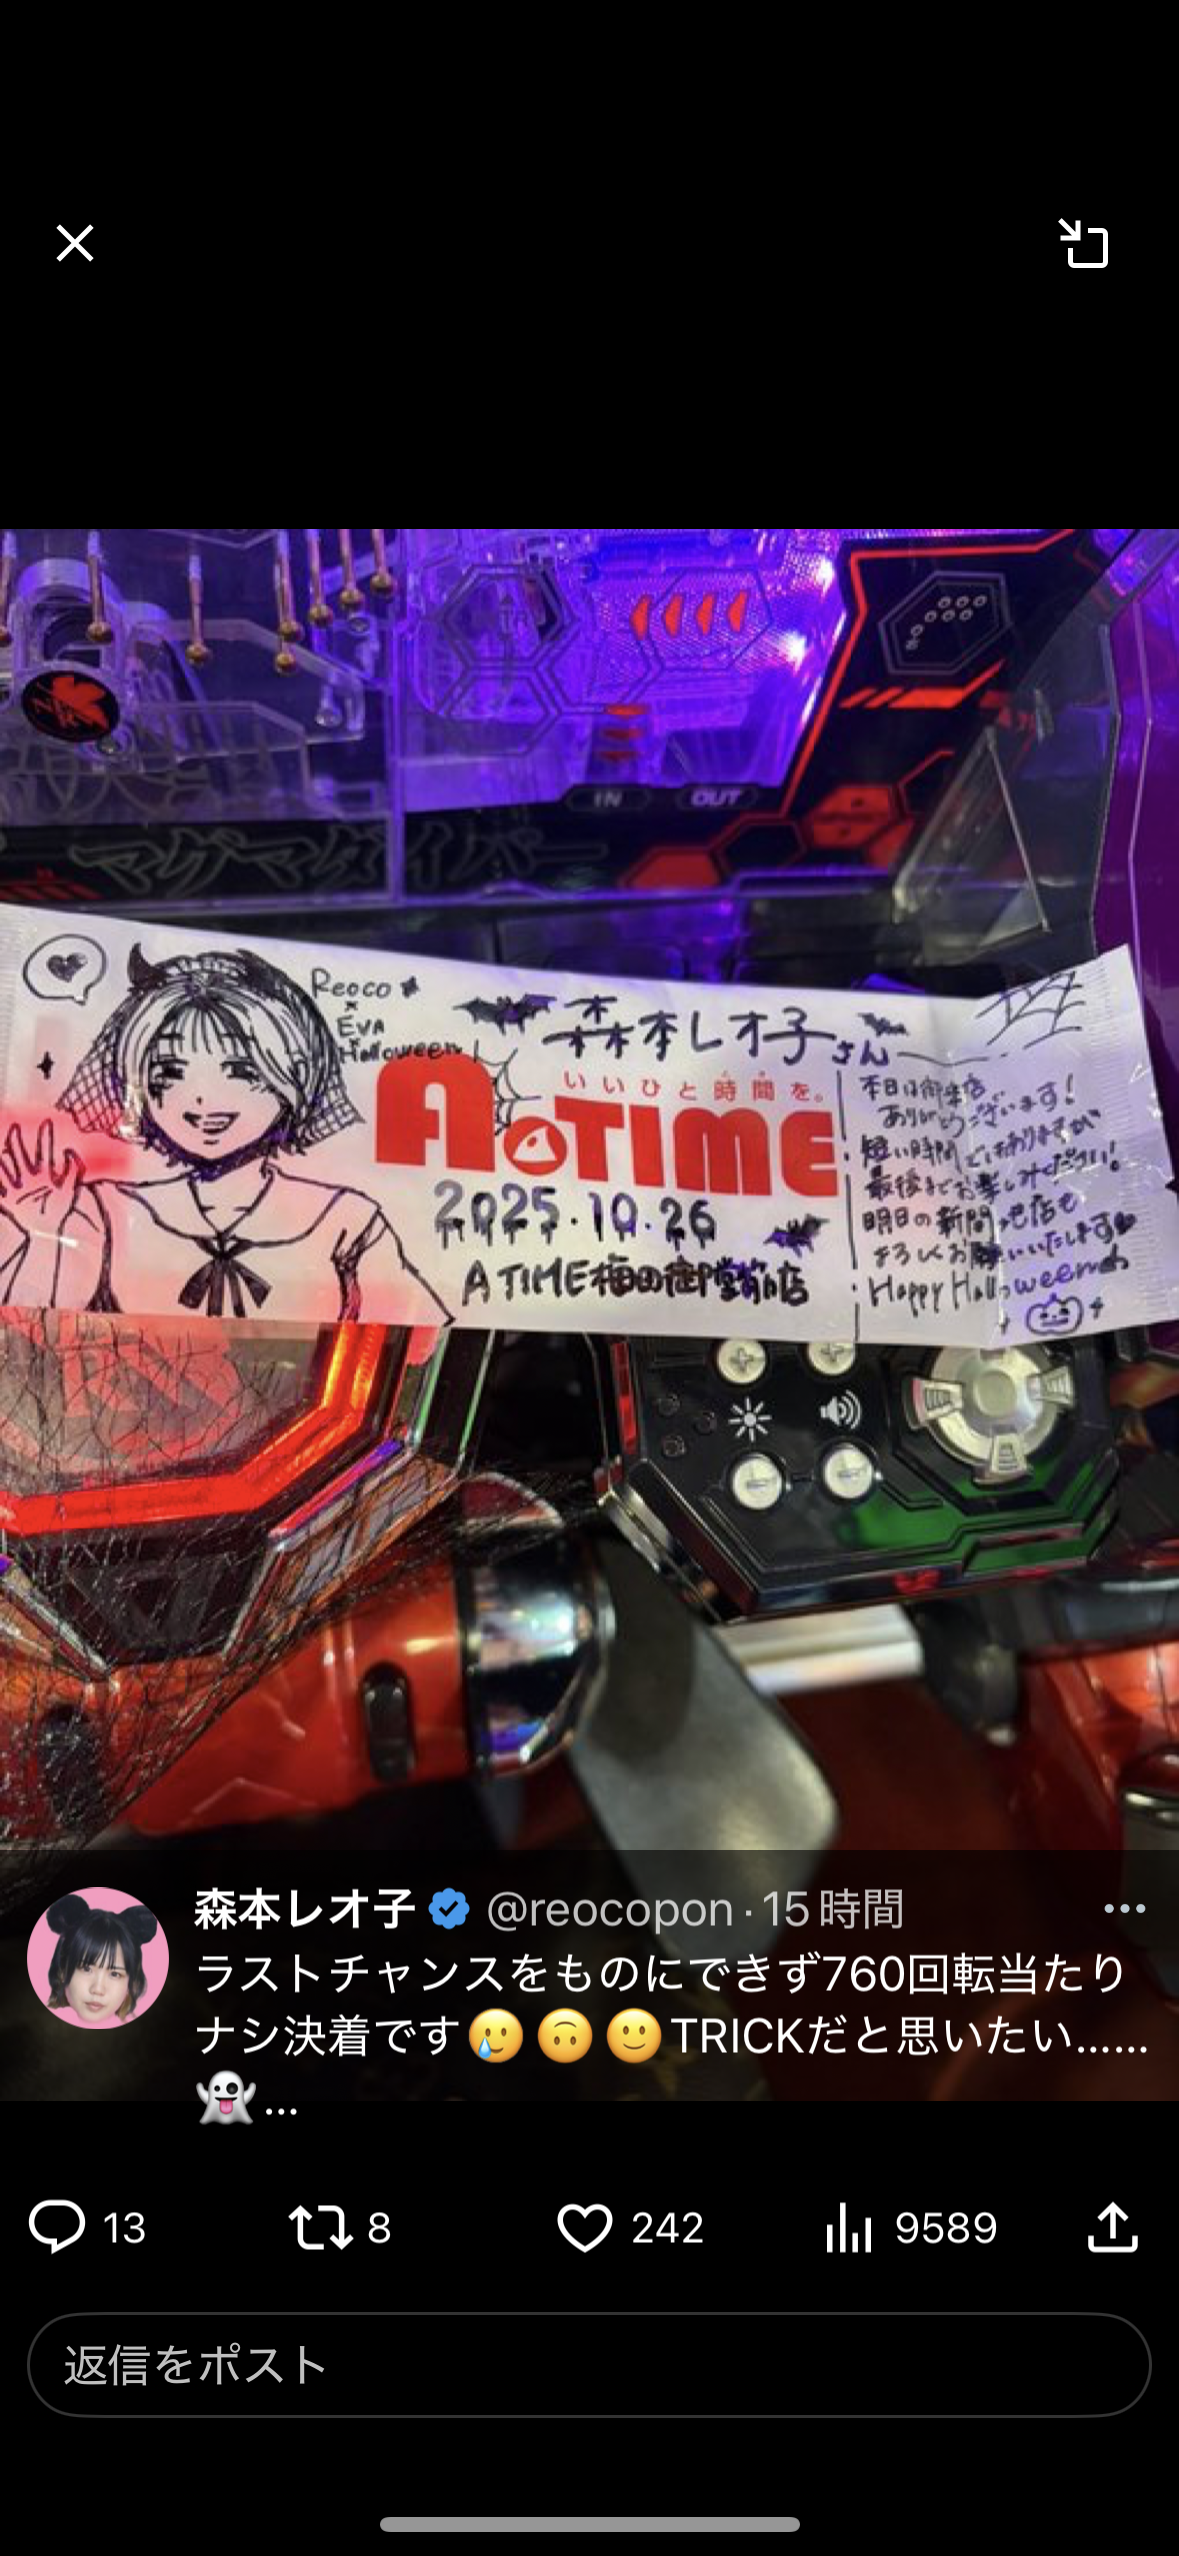 IN OUT
マグマダイバー
Reoco
×
EVA
Halloween!
森本レオ子さん
いいひと時間を。
A・TIME
2025.10.26
A TIME梅田御堂筋店
本日は御来店
ありがとうございます!
短い時間ではありますが
最後までお楽しみください!
明日の新聞 店も
よろしくお願いいたします
Happy Halloween
森本レオ子 @reocopon · 15時間
ラストチャンスをものにできず760回転当たり
ナシ決着です🥲🙃🙂TRICKだと思いたい......
👻...
13 8 242 9589
返信をポスト